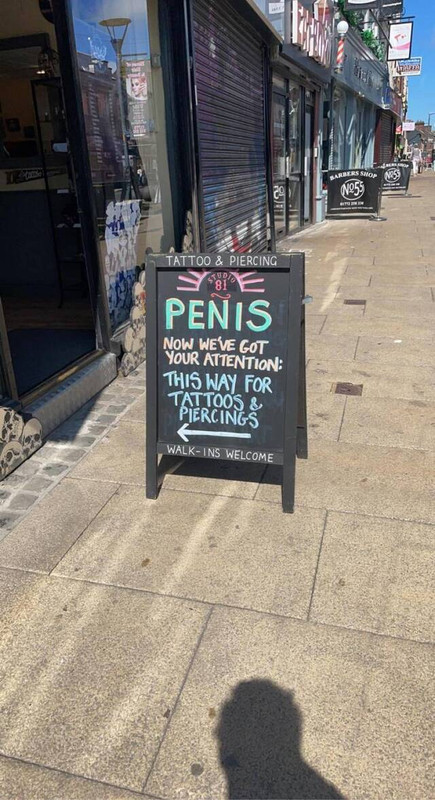 TATTOO & PIERCING
STUDIO
81
PENIS
NOW WE'VE GOT
YOUR ATTENTION:
THIS WAY FOR
TATTOOS &
PIERCINGS
WALK-INS WELCOME
BARBERS SHOP
No55
No55